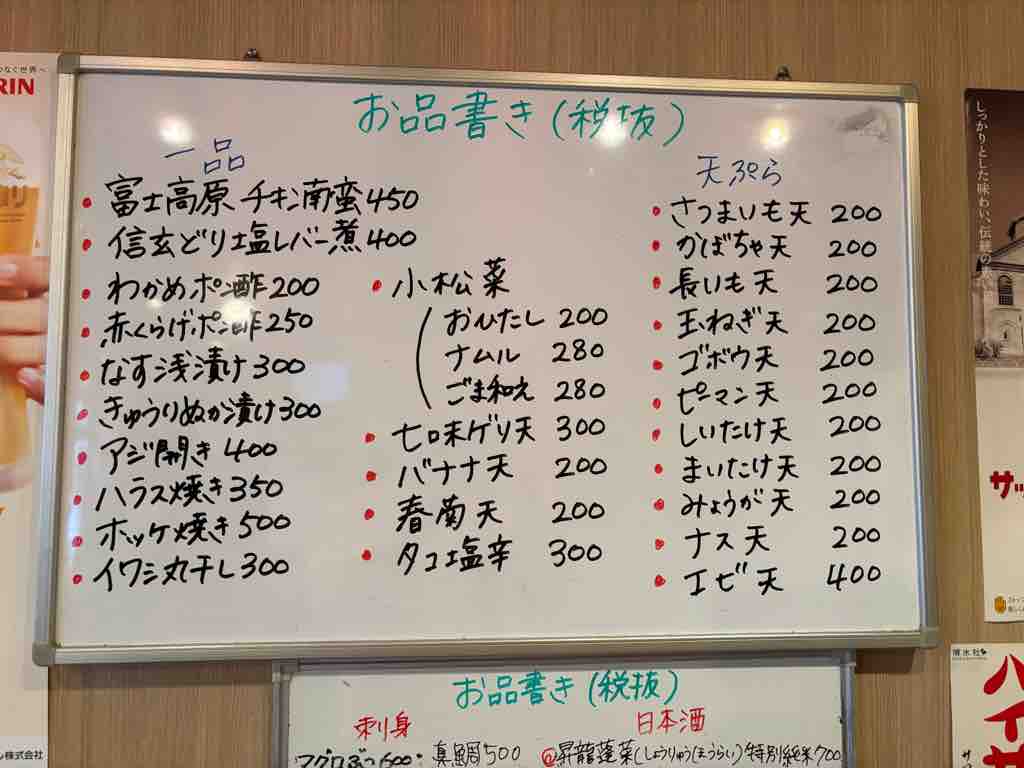 お品書き(税抜)
一品
・富士高原チキン南蛮450
・信玄どり塩レバー煮400
・わかめポン酢200
・赤くらげポン酢250
・なす浅漬け300
・きゅうりぬか漬け300
・アジ開き400
・ハラス焼き350
・ホッケ焼き500
・イワシ丸干し300
・小松菜
おひたし 200
ナムル 280
ごま和え 280
・七味ゲソ天 300
・バナナ天 200
・春菊天 200
・タコ塩辛 300
天ぷら
・さつまいも天 200
・かぼちゃ天 200
・長いも天 200
・玉ねぎ天 200
・ゴボウ天 200
・ピーマン天 200
・しいたけ天 200
・まいたけ天 200
・みょうが天 200
・ナス天 200
・エビ天 400
お品書き(税抜)
刺身
マグロぶつ600
真鯛500
日本酒
@昇龍蓬莱(しょりゅうほうらい)特別純米700
なぐ世界へ
RIN
株式会社
しっかりとした味わい、伝統の
サッ
博水社
ハイサ